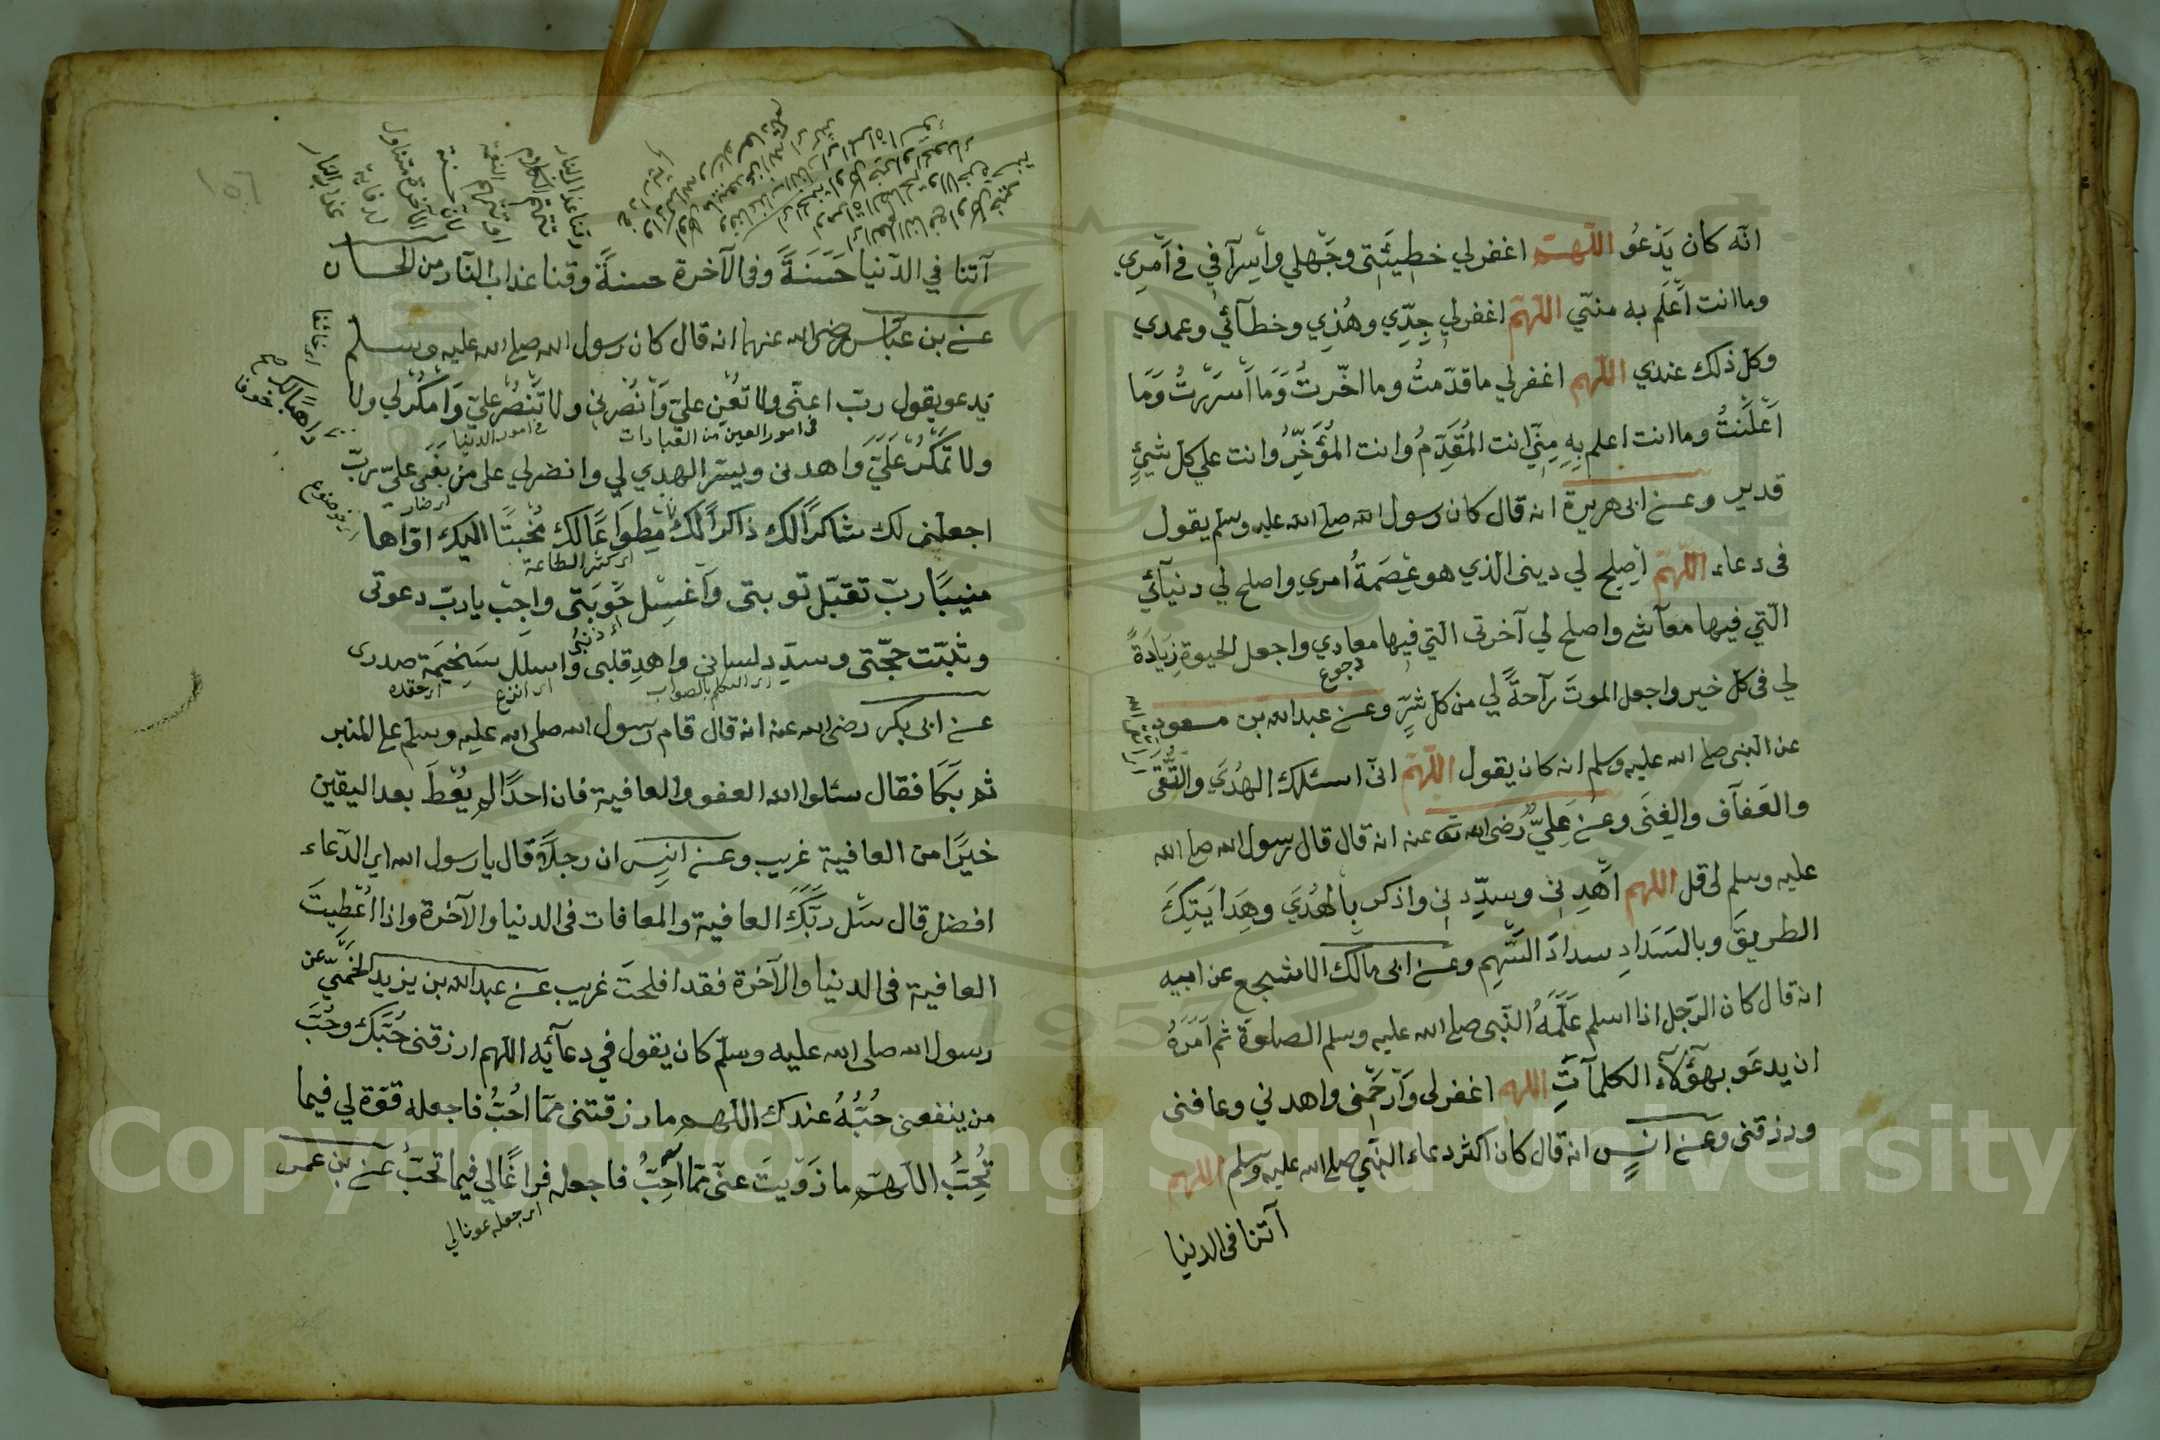 انّه كان يَدْعُو اللّهمّ اغفرلي خطيئَتِى وجَهلي وأسِرآفي في أمْرِي
وما انت أعْلَم به منّي اللّهمّ اغفرلي جِدّي وهَزلي وخطآئي وعمدي
وكلّ ذلك عندي اللّهم اغفرلي ما قدّمتُ وما اخّرتُ وَمَا أسرَرْتُ وَمَا
أعْلَنْتُ وما انت اعلم بِهِ مِنّي انت المُقَدِّمُ وانت المُؤَخِّرُ وانت علي كل شيئٍ
قدير وعن ابى هريرة انه قال كان رسول الله صلى الله عليه وسلم يقول
فى دعاء اللّهمّ أصلح لي دينى الذي هو عِصَمةُ امري واصلح لي دنيآئي
الّتي فيها معآشى واصلح لي آخرتى الّتي فيها معادي واجعل الحيوة زيَادَةً
رجوع
لي فى كل خير واجعل الموتَ رآحةً لي من كل شرّ وعن عبد الله بن مسعود
عن النبى صلى الله عليه وسلم انه كان يقول اللّهمّ انّى اسئلك الهُدَي والتُّقَى
والعَفآف والغِنَى وعن عَلِيّ رضى الله تع عنه انه قال قال رسول الله صلى الله
عليه وسلم لى قل اللهم اهْدِنى وسدّدنى واذكر بالهُدَي وهِدَايَتِكَ
الطريقَ وبالسَدَادِ سدادَ السّهمِ وعن ابى مالك الاشجع عن ابيه
انه قال كان الرّجل اذا اسلم عَلَّمَهُ النّبى صلى الله عليه وسلم الصلوة ثم اَمَرَهُ
ان يدعَو بهؤلآء الكلمآتِ اللهم اغفرلى وَارْحَمْنى واهدني وعافنى
ورزقنى وعن انسٍ انه قال كان اكثر دعاء النّبي صلى الله عليه وسلم اللهم
آتنا فى الدنيا
١٥٦
آتنا في الدّنيا حَسَنَةً وفى الآخرة حسنةً وقنا عذاب النّار من الحسان
عن بن عبّاس رضى الله عنهما انه قال كان رسول الله صلى الله عليه وسلم
يدعو يقول ربّ اعنّى ولا تعُن علىّ وَانْصُرنى ولا تَنْصُرْ علىّ وَامْكُرْلي ولا
فى امور الدين من العبادات فى امور الدنيا
ولا تَمْكُرْ عَلَيّ واهدنى ويسّر الهدي لي وانصرلي على مَن بَغَى علىّ ربّ
اجعلنى لك شاكرًا لك ذاكرًا لك مِطوَاعًا لك مُخبتًا اليك اوّاها
اى كثير الطاعة
منيبًا ربّ تقبّل توبتى وَاغسِل حَوبَتى واجِب يا ربّ دعوتى
اى ذنبى
وثبّت حجّتى وسدّد لسانى واهد قلبى واسلل سَخِيمَة صدرى
اى التكلم بالصواب اى انزع اى حقده
عن ابى بكر رضى الله عنه انه قال قام رسول الله صلى الله عليه وسلم على المنبر
ثم بَكَا فقال سئلوا الله العفو والعافية فان احدًا لم يُعْطَ بعد اليقين
خيرًا من العافية غريب وعن انسٍ ان رجلاً قال يا رسول الله اى الدّعاء
افضل قال سَل ربَّكَ العافية والمعافات فى الدنيا والآخرة واذا اُعْطِيتَ
العافية فى الدنيا والآخرة فقد افلحتَ غريب عن عبد الله بن يزيد الخَطمَيّ عن
رسول الله صلى الله عليه وسلّم كان يقول في دعآئه اللّهم ارزقنى حُبَّكَ وحُبَّ
من ينفعنى حُبُّهُ عندك اللّهم ما رزقتنى ممّا احُبّ فاجعله قوّة لي فيما
تُحِبُّ اللّهمّ ما زَوَيتَ عنّى ممّا اُحِبُّ فاجعله فراغًا لي فيما تحبّ عن بن عمر
اى جعله عونا لي
Copyright © King Saud University
1957